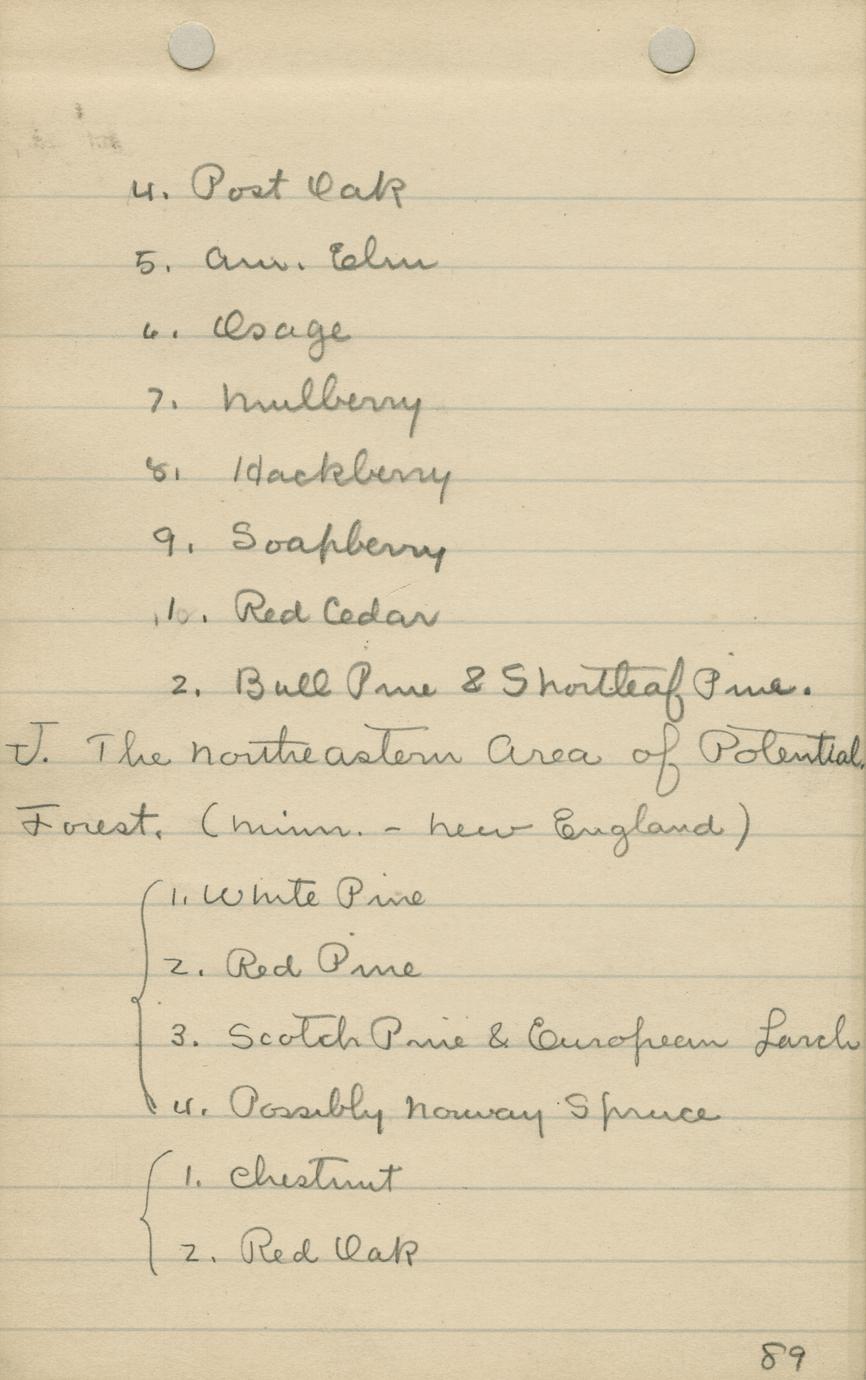 4. Post Oak
5. Am. Elm
6. Osage
7. Mulberry
8. Hackberry
9. Soapberry
1. Red Cedar
2. Bull Pine & Shortleaf Pine.
J. The Northeastern Area of Potential
Forest. (Minn. - New England)
1. White Pine
2. Red Pine
3. Scotch Pine & European Larch
4. Possibly Norway Spruce
1. Chestnut
2. Red Oak
89